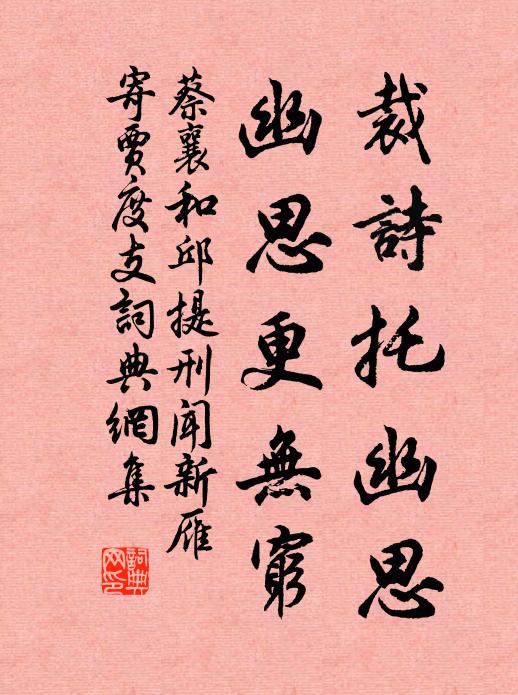 裁詩托幽思
幽思更無窮
蔡襄和邱提刑聞新雁
寄賈度支詞典網集
詞典網印